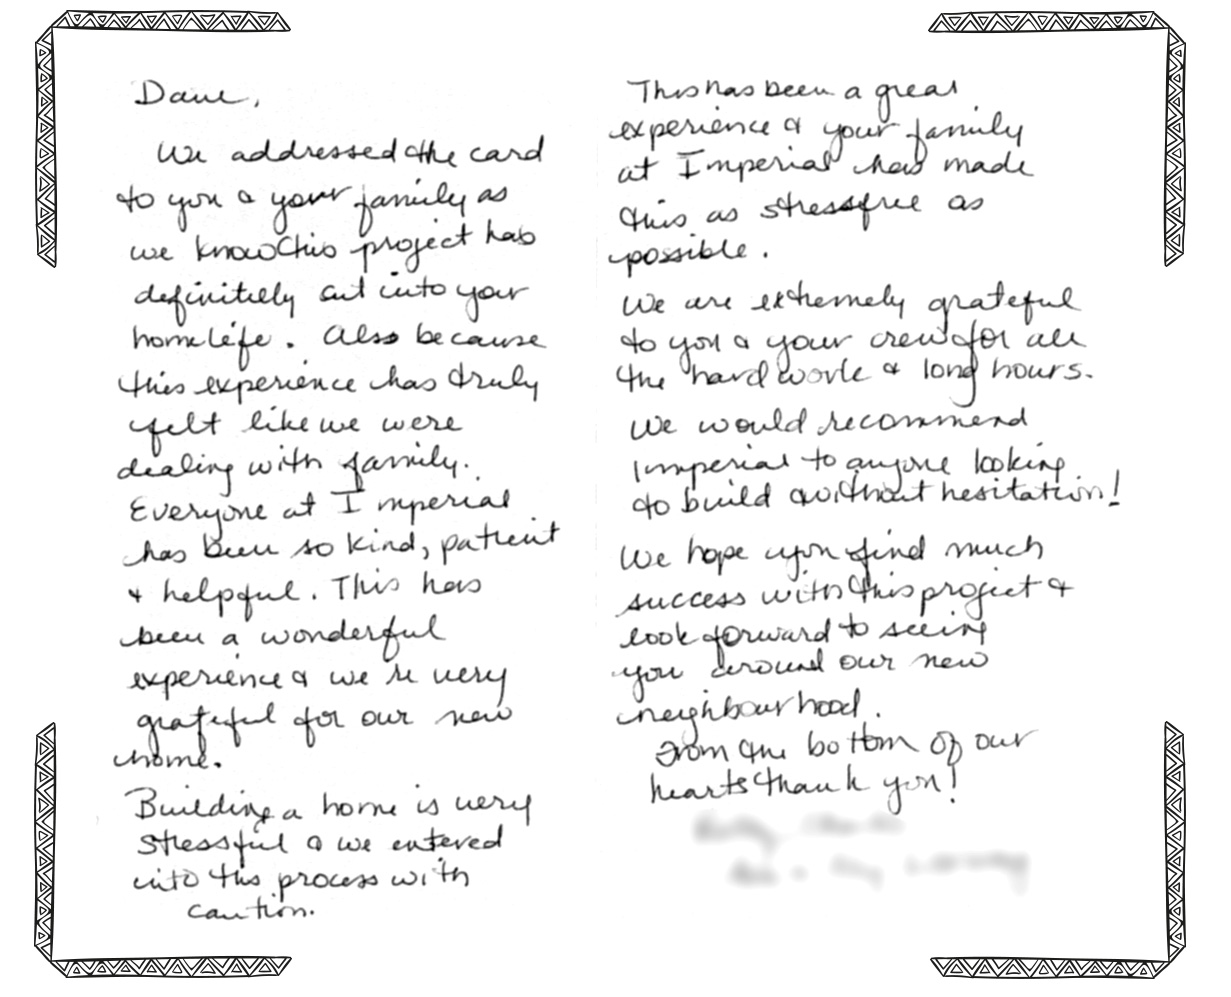 Dave,
We addressed the card
to you & your family as
we know this project has
definitely cut into your
home life. Also because
this experience has truly
felt like we were
dealing with family.
Everyone at Imperial
has been so kind, patient
& helpful. This has
been a wonderful
experience & we're very
grateful for our new
home.
Building a home is very
stressful & we entered
into this process with
caution.
This has been a great
experience & your family
at Imperial has made
this as stressfree as
possible.
We are extremely grateful
to you & your crew for all
the hard work & long hours.
We would recommend
Imperial to anyone looking
to build & without hesitation!
We hope you find much
success with this project &
look forward to seeing
you around our new
neighbourhood.
From the bottom of our
hearts thank you!